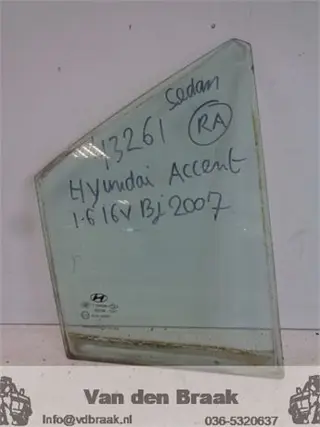 Sedan
13261
RA
Hyundai Accent
1.6 16V Bj 2007
Van den Braak
info@vdbraak.nl
036-5320637